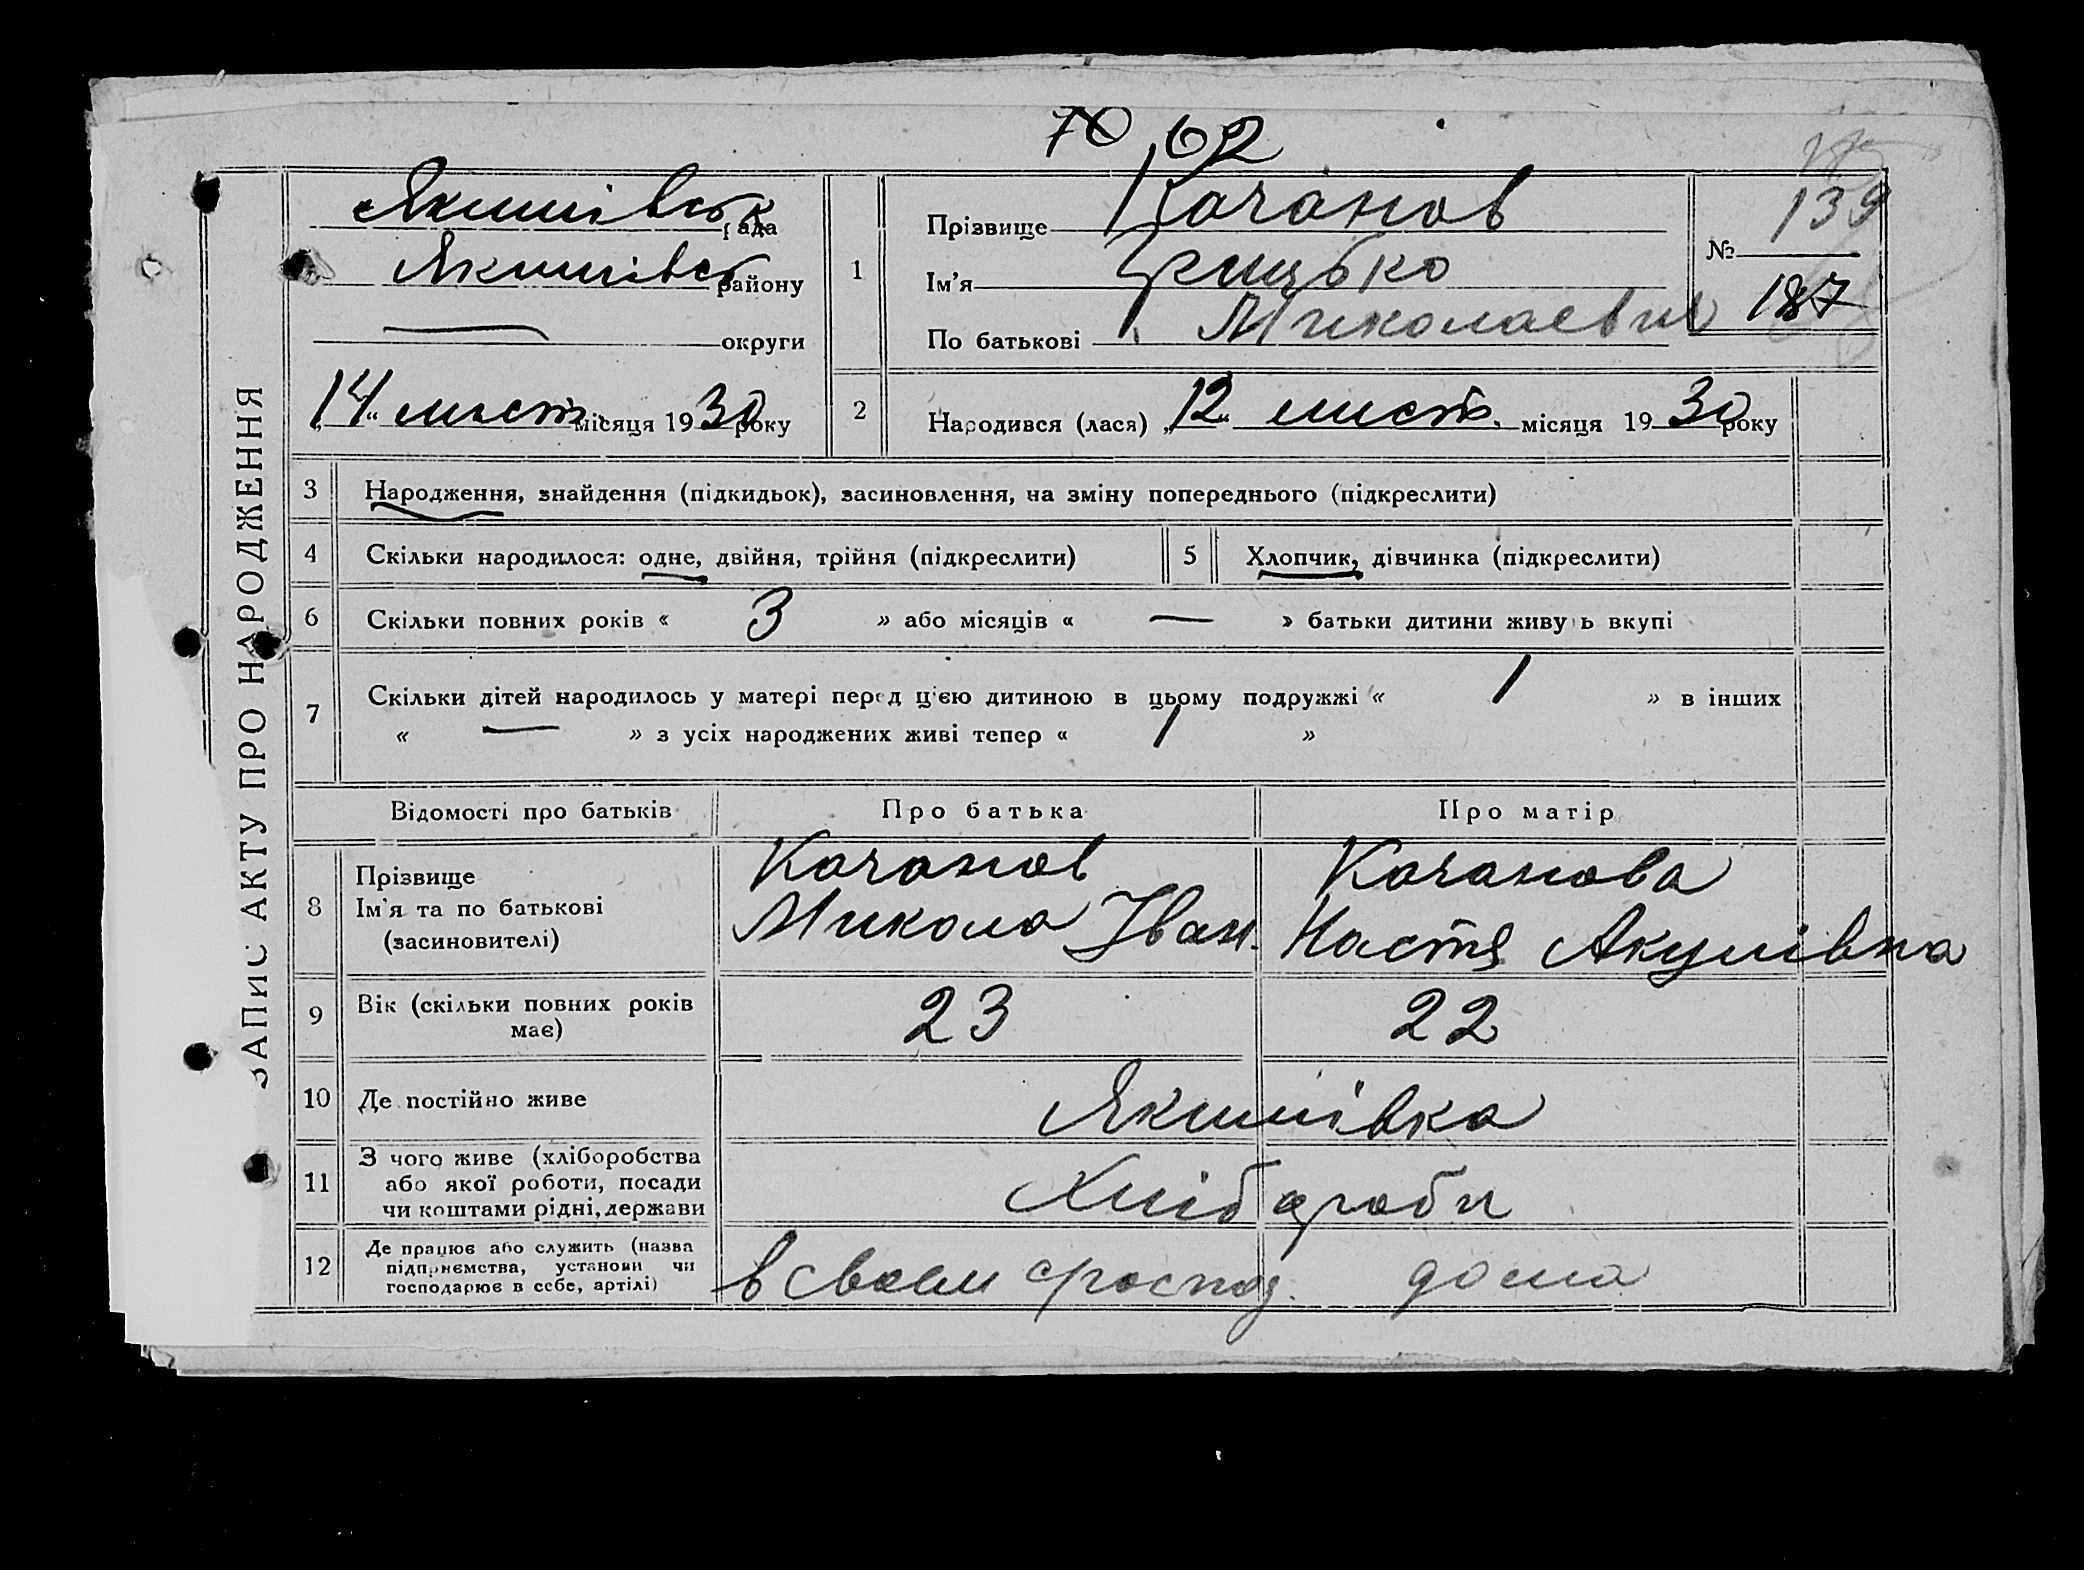 70 62
Якимівськ рада
Якимівськ району
округи
14 " лист. місяця 1930 року
1
Прізвище Качанов
Ім'я Грицько
По батькові Миколаевич
139
№
187
2
Народився (лася) „12" лист. місяця 1930 року
ЗАПИС АКТУ ПРО НАРОДЖЕННЯ
3 Народження, знайдення (підкидьок), засиновлення, на зміну попереднього (підкреслити)
4 Скільки народилося: одне, двійня, трійня (підкреслити) 5 Хлопчик, дівчинка (підкреслити)
6 Скільки повних років « 3 » або місяців « — » батьки дитини живуть вкупі
7 Скільки дітей народилось у матері перед цією дитиною в цьому подружжі « 1 » в інших
« — » з усіх народжених живі тепер « 1 »
Відомості про батьків Про батька Про матір
8 Прізвище
Ім'я та по батькові
(засиновителі)
Качанов
Микола Іван.
Качанова
Настя Акимівна
9 Вік (скільки повних років
має)
23 22
10 Де постійно живе Якимівка
11 З чого живе (хліборобства
або якої роботи, посади
чи коштами рідні, держави
Хліб ороби
12 Де працює або служить (назва
підприємства, установи чи
господарює в себе, артілі)
в своем господ. дома